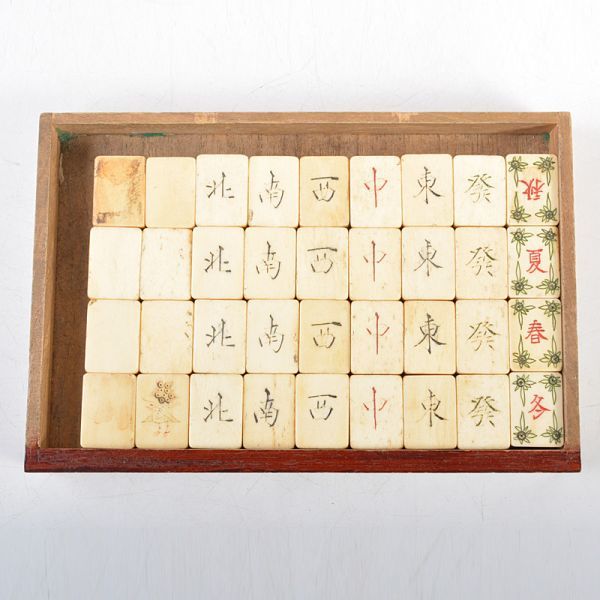 北 南 西 中 東 發 秋
北 南 西 中 東 發 夏
北 南 西 中 東 發 春
北 南 西 中 東 發 冬